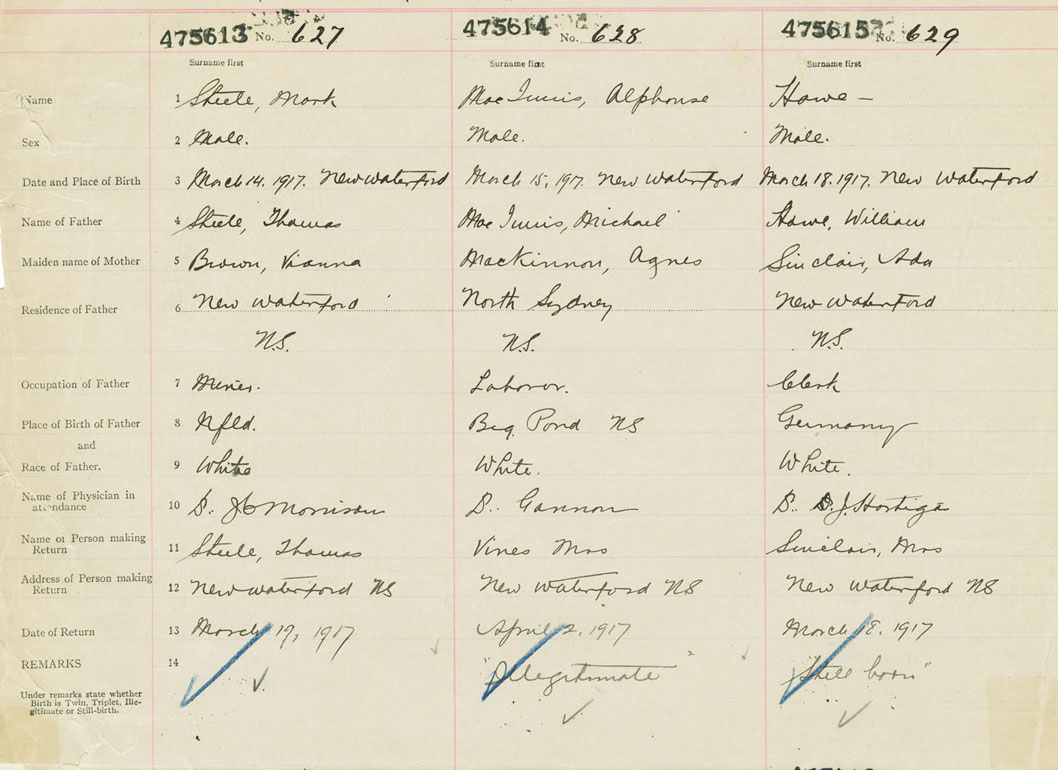 475613 No. 627 475614 No. 628 475615 No. 629
Surname first Surname first Surname first
Name 1 Steele, Mark MacInnis, Alphonse Howe —
Sex 2 Male. Male. Male.
Date and Place of Birth 3 March 14, 1917. New Waterford March 15, 1917. New Waterford March 18, 1917. New Waterford
Name of Father 4 Steele, Thomas MacInnis, Michael Howe, William
Maiden name of Mother 5 Brown, Vianna MacKinnon, Agnes Sinclair, Ada
Residence of Father 6 New Waterford North Sydney New Waterford
N.S. N.S. N.S.
Occupation of Father 7 Miner. Laboror. Clerk
Place of Birth of Father 8 Nfld. Big Pond NS Germany
and
Race of Father. 9 White White. White.
Name of Physician in
attendance 10 D.. Morrison D.. Gannon D.. D.J. Hartigan
Name of Person making
Return 11 Steele, Thomas Vines Mrs Sinclair, Mrs
Address of Person making
Return 12 New Waterford NS New Waterford NS New Waterford NS
Date of Return 13 March 19, 1917 April 2, 1917 March 18, 1917
REMARKS 14 "Illegitimate" "Still born"
Under remarks state whether
Birth is Twin, Triplet, Ille-
gitimate or Still-birth.